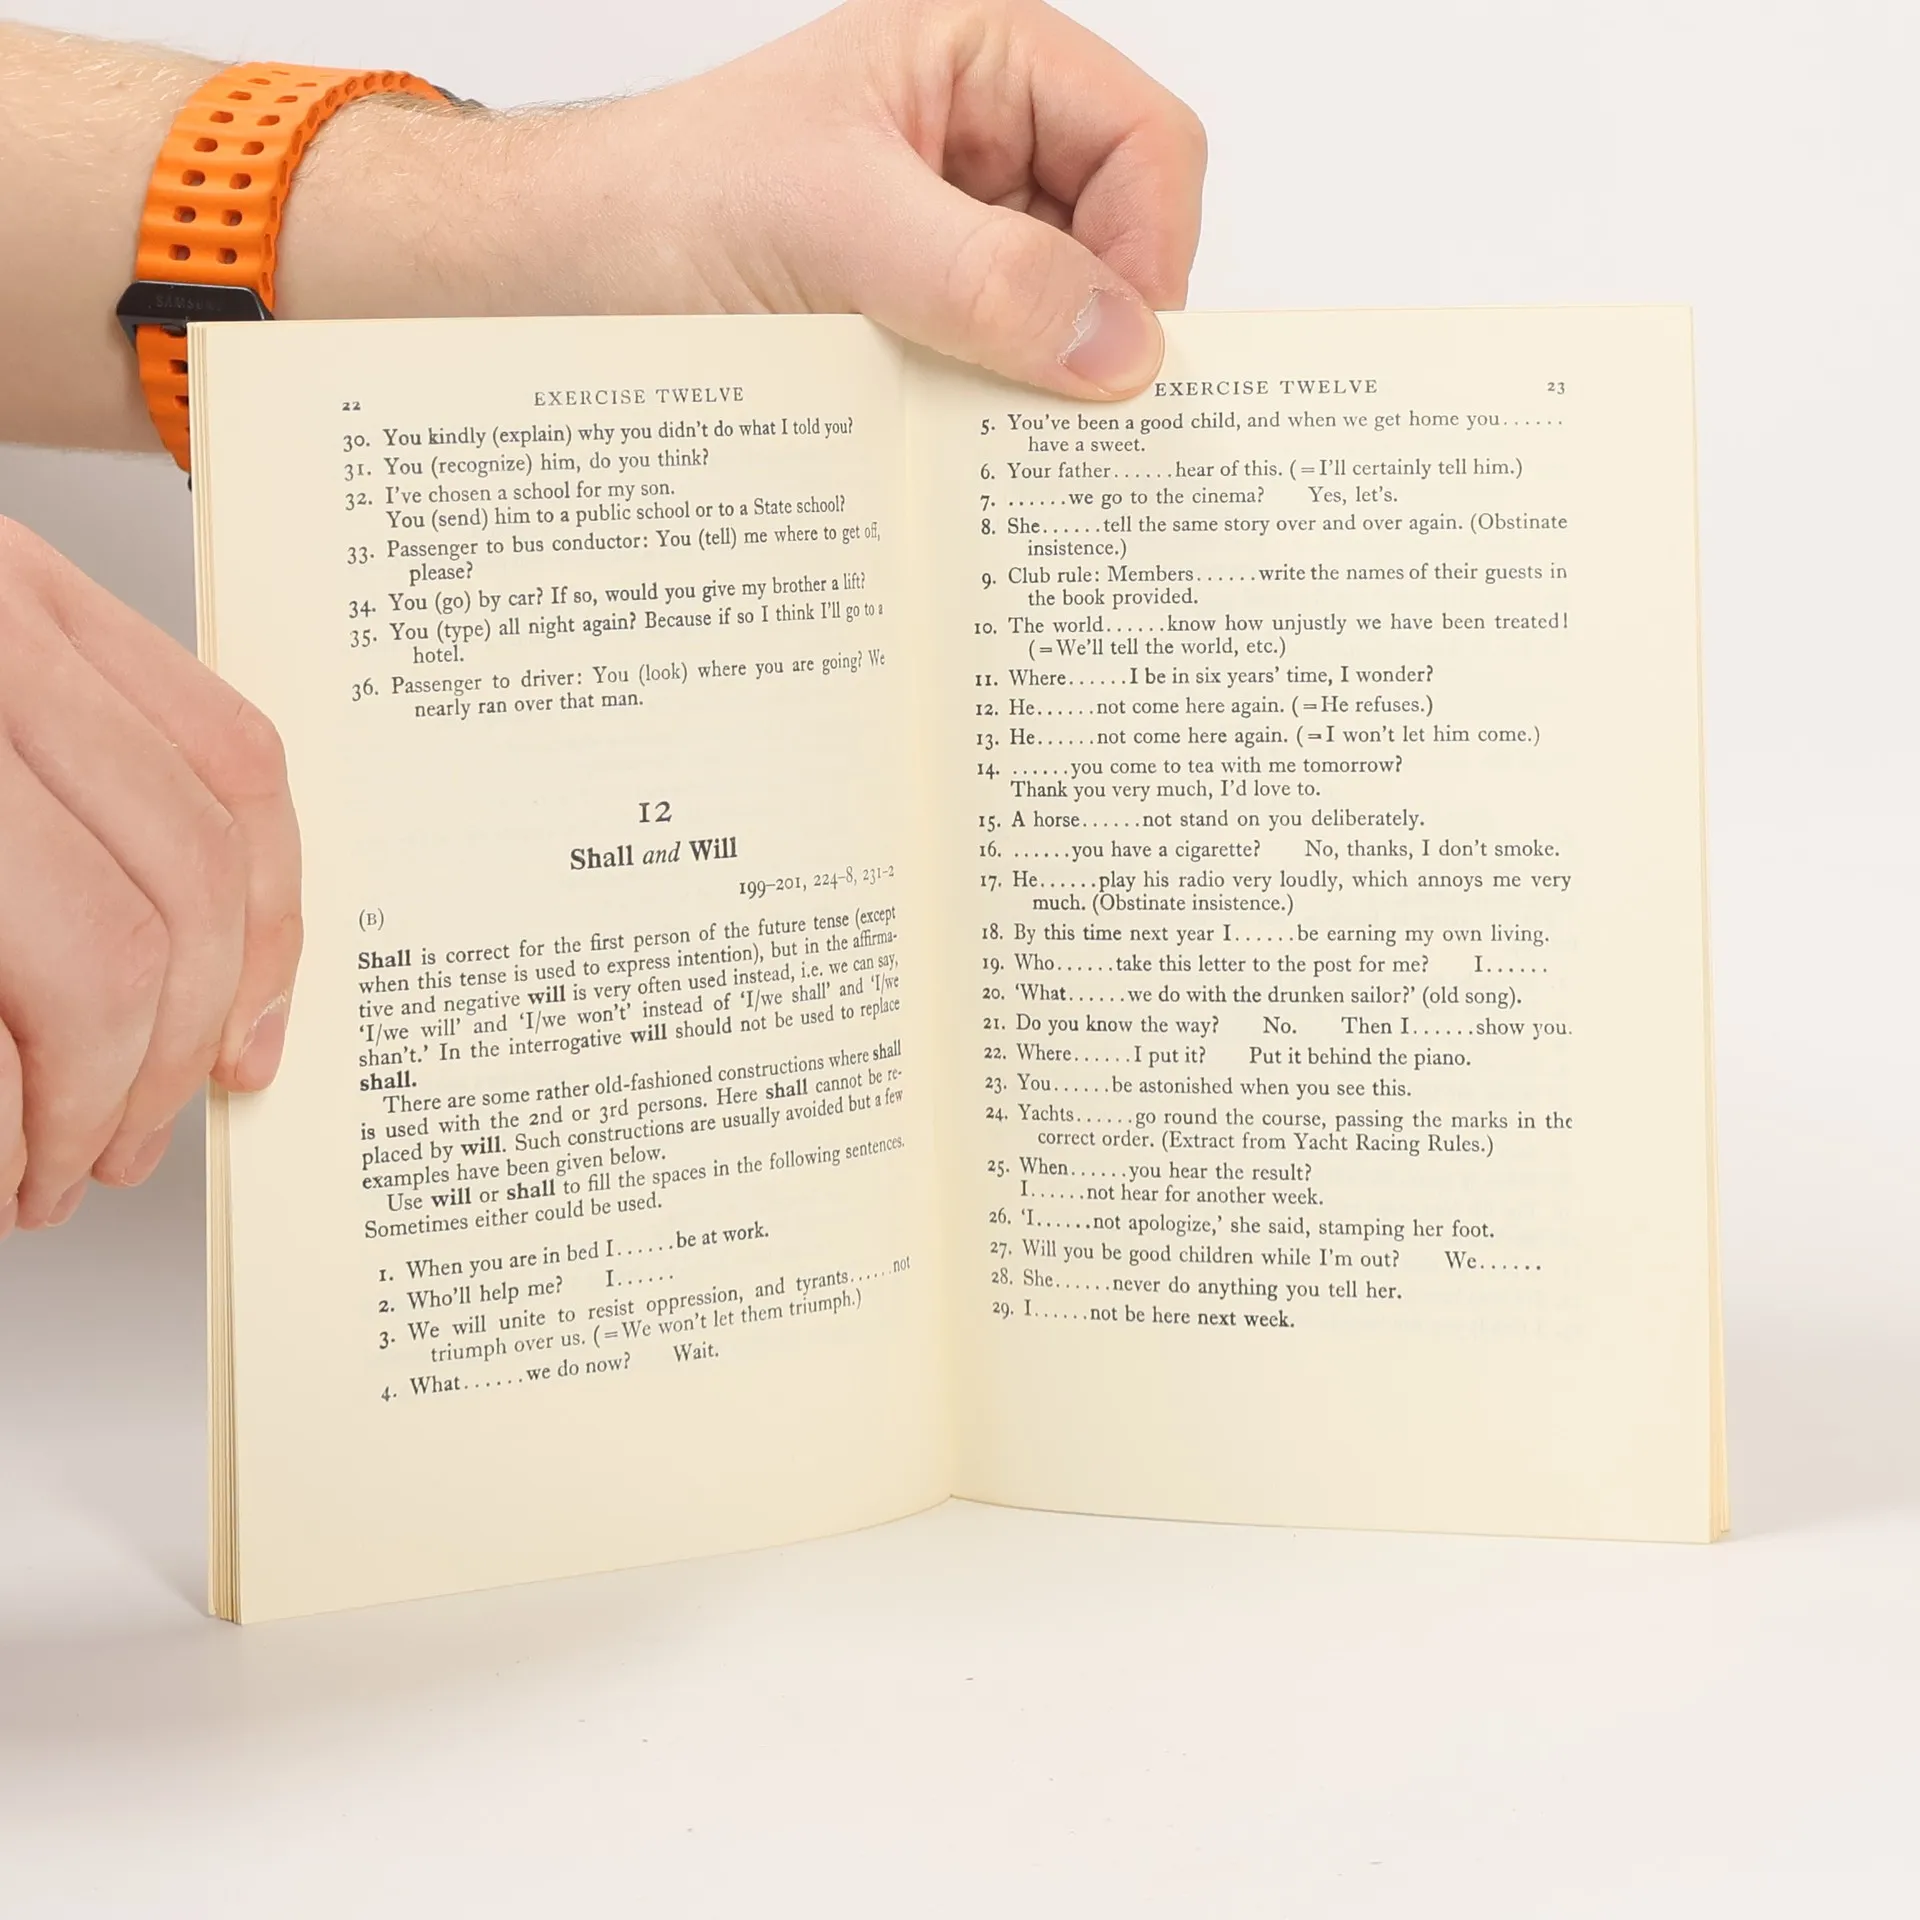 SAMSUNG
22
EXERCISE TWELVE
30. You kindly (explain) why you didn't do what I told you?
31. You (recognize) him, do you think?
32. I've chosen a school for my son.
You (send) him to a public school or to a State school?
33. Passenger to bus conductor: You (tell) me where to get off,
please?
34. You (go) by car? If so, would you give my brother a lift?
35. You (type) all night again? Because if so I think I'll go to a
hotel.
36. Passenger to driver: You (look) where you are going? We
nearly ran over that man.
12
Shall and Will
199–201, 224–8, 231–2
(B)
Shall is correct for the first person of the future tense (except
when this tense is used to express intention), but in the affirma-
tive and negative will is very often used instead, i.e. we can say,
'I/we will' and 'I/we won't' instead of 'I/we shall' and 'I/we
shan't.' In the interrogative will should not be used to replace
shall.
There are some rather old-fashioned constructions where shall
is used with the 2nd or 3rd persons. Here shall cannot be re-
placed by will. Such constructions are usually avoided but a few
examples have been given below.
Use will or shall to fill the spaces in the following sentences.
Sometimes either could be used.
1. When you are in bed I......be at work.
2. Who'll help me? I......
3. We will unite to resist oppression, and tyrants......not
triumph over us. (=We won't let them triumph.)
4. What......we do now? Wait.
EXERCISE TWELVE
23
5. You've been a good child, and when we get home you......
have a sweet.
6. Your father......hear of this. (=I'll certainly tell him.)
7. ......we go to the cinema? Yes, let's.
8. She......tell the same story over and over again. (Obstinate
insistence.)
9. Club rule: Members......write the names of their guests in
the book provided.
10. The world......know how unjustly we have been treated!
(=We'll tell the world, etc.)
11. Where......I be in six years' time, I wonder?
12. He......not come here again. (=He refuses.)
13. He......not come here again. (=I won't let him come.)
14. ......you come to tea with me tomorrow?
Thank you very much, I'd love to.
15. A horse......not stand on you deliberately.
16. ......you have a cigarette? No, thanks, I don't smoke.
17. He......play his radio very loudly, which annoys me very
much. (Obstinate insistence.)
18. By this time next year I......be earning my own living.
19. Who......take this letter to the post for me? I......
20. 'What......we do with the drunken sailor?' (old song).
21. Do you know the way? No. Then I......show you.
22. Where......I put it? Put it behind the piano.
23. You......be astonished when you see this.
24. Yachts......go round the course, passing the marks in the
correct order. (Extract from Yacht Racing Rules.)
25. When......you hear the result?
I......not hear for another week.
26. 'I......not apologize,' she said, stamping her foot.
27. Will you be good children while I'm out? We......
28. She......never do anything you tell her.
29. I......not be here next week.